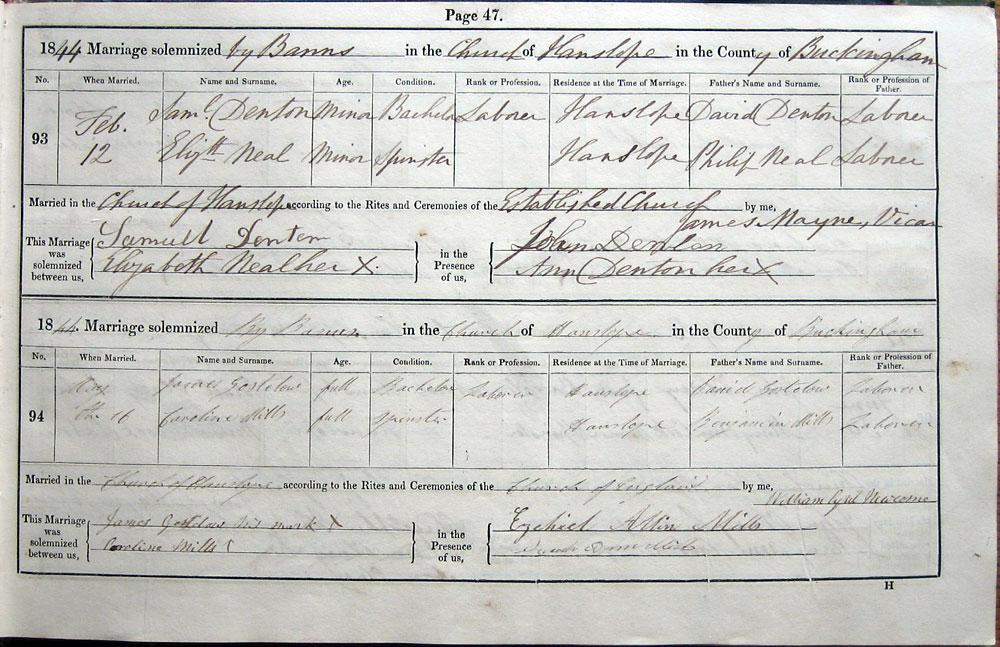 Page 47.
1844 Marriage solemnized by Banns in the Church of Hanslope in the County of Buckingham
No. When Married. Name and Surname. Age. Condition. Rank or Profession. Residence at the Time of Marriage. Father's Name and Surname. Rank or Profession of Father.
93 Feb. 12 Saml. Denton Minor Bachelor Laborer Hanslope David Denton Laborer
Elizth Neal Minor Spinster Hanslope Philip Neal Laborer
Married in the Church of Hanslope according to the Rites and Ceremonies of the Established Church by me, James Mayne, Vicar
This Marriage was solemnized between us, Samuell Denton in the Presence of us, John Denton
Elizabeth Neal her X Ann Denton her X
1844. Marriage solemnized By Banns in the Church of Hanslope in the County of Buckingham
No. When Married. Name and Surname. Age. Condition. Rank or Profession. Residence at the Time of Marriage. Father's Name and Surname. Rank or Profession of Father.
94 May 16 James Gostelow full Bachelor Laborer Hanslope David Gostelow Laborer
Caroline Mills full Spinster Hanslope Benjamin Mills Laborer
Married in the Church of Hanslope according to the Rites and Ceremonies of the Church of England by me, William Newcome
This Marriage was solemnized between us, James Gostelow his mark X in the Presence of us, Ezekiel Allin Mills
Caroline Mills Mills
H